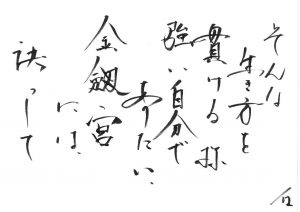 そんな
生き方を
貫ける様
強い自分で
ありたい、
金劔宮
には、
決して